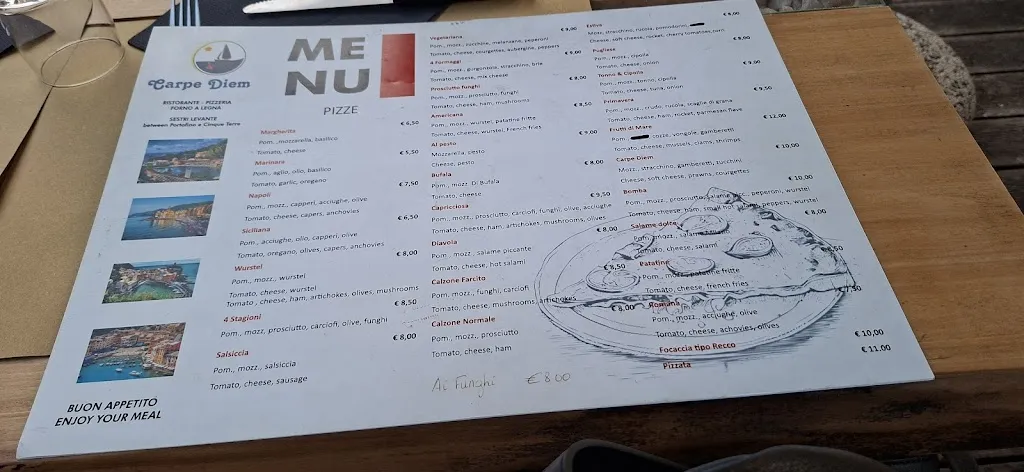 Carpe Diem
RISTORANTE - PIZZERIA
FORNO A LEGNA
SESTRI LEVANTE
between Portofino e Cinque Terre
BUON APPETITO
ENJOY YOUR MEAL
ME
NU
PIZZE
Margherita € 6,50
Pom., mozzarella, basilico
Tomato, cheese
Marinara € 5,50
Pom., aglio, olio, basilico
Tomato, garlic, oregano
Napoli € 7,50
Pom., mozz., capperi, acciughe, olive
Tomato, cheese, capers, anchovies
Siciliana € 6,50
Pom., acciughe, olio, capperi, olive
Tomato, oregano, olives, capers, anchovies
Wurstel € 8,00
Pom., mozz., wurstel
Tomato, cheese, wurstel
Tomato, cheese, ham, artichokes, olives, mushrooms
4 Stagioni € 8,50
Pom., mozz., prosciutto, carciofi, olive, funghi
Salsiccia € 8,00
Pom., mozz., salsiccia
Tomato, cheese, sausage
Vegetariana € 9,00
Pom., mozz., zucchine, melanzane, peperoni
Tomato, cheese, courgettes, aubergine, peppers
4 Formaggi € 9,00
Pom., mozz., gorgonzola, stracchino, brie
Tomato, cheese, mix cheese
Prosciutto funghi € 8,00
Pom., mozz., prosciutto, funghi
Tomato, cheese, ham, mushrooms
Americana € 8,50
Pom., mozz., wurstel, patatine fritte
Tomato, cheese, wurstel, French fries
Al pesto € 9,00
Mozzarella, pesto
Cheese, pesto
Bufala € 8,00
Pom., mozz. Di Bufala
Tomato, cheese
Capricciosa € 9,50
Pom., mozz., prosciutto, carciofi, funghi, olive, acciughe
Tomato, cheese, ham, artichokes, mushrooms, olives
Diavola € 8,00
Pom., mozz., salame piccante
Tomato, cheese, hot salami
Calzone Farcito € 8,50
Pom., mozz., funghi, carciofi
Tomato, cheese, mushrooms, artichokes
Calzone Normale € 8,00
Pom., mozz., prosciutto
Tomato, cheese, ham
Ai Funghi € 8 00
Estiva € 9,00
Mozz., stracchino, rucola, pomodorini,
Cheese, soft cheese, rocket, cherry tomatoes,
Pugliese € 8,00
Pom., mozz., cipolla
Tomato, cheese, onion
Tonno & Cipolla € 9,00
Pom., mozz., tonno, cipolla
Tomato, cheese, tuna, onion
Primavera € 9,50
Pom., mozz., crudo, rucola, scaglie di grana
Tomato, cheese, ham, rocket, parmesan flave
Frutti di Mare € 12,00
Pom., cozze, vongole, gamberetti
Tomato, cheese, mussels, clams, shrimps
Carpe Diem € 10,00
Mozz., stracchino, gamberetti, zucchini
Cheese, soft cheese, prawns, courgettes
Bomba € 10,00
Pom., mozz., prosciutto, salame picc., peperoni, wurstel
Tomato, cheese, ham, small hot salami, peppers, wurstel
Salame dolce € 8,00
Pom., mozz., salame
Tomato, cheese, salami
Patatine € 8,50
Pom., mozz., patatine fritte
Tomato, cheese, french fries
Romana € 7,50
Pom., mozz., acciughe, olive
Tomato, cheese, achovies, olives
Focaccia tipo Recco € 10,00
Pizzata € 11,00